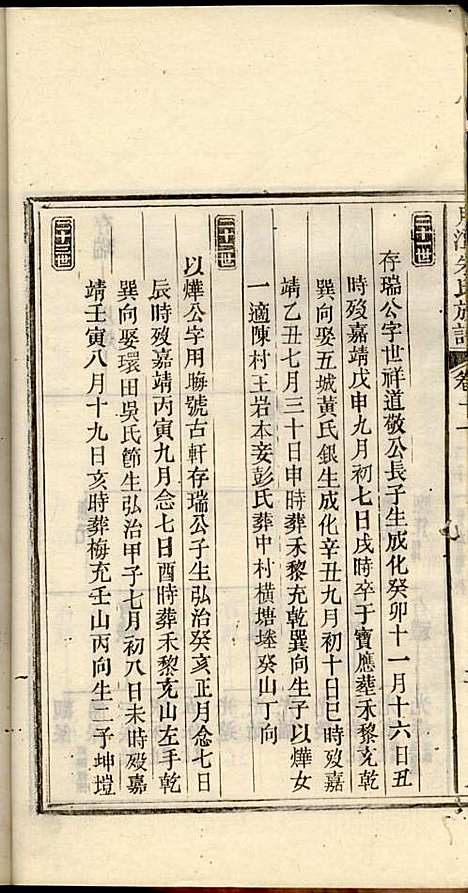 二十一世
存瑞公字世祥道敬公長子生成化癸卯十一月十六日丑
時歿嘉靖戊申九月初七日戌時卒于寶應葬禾黎充乾
巽向娶五城黃氏銀生成化辛丑九月初十日巳時歿嘉
靖乙丑七月三十日申時葬禾黎充乾巽向生子以燁女
一適陳村王岩本妾彭氏葬中村橫塘塝癸山丁向
二十二世
以燁公字用晦號古軒存瑞公子生弘治癸亥正月念七日
辰時歿嘉靖丙寅九月念七日酉時葬禾黎充山左手乾
巽向娶環田吳氏節生弘治甲子七月初八日未時歿嘉
靖壬寅八月十九日亥時葬梅充壬山丙向生二子坤塏
二十三世